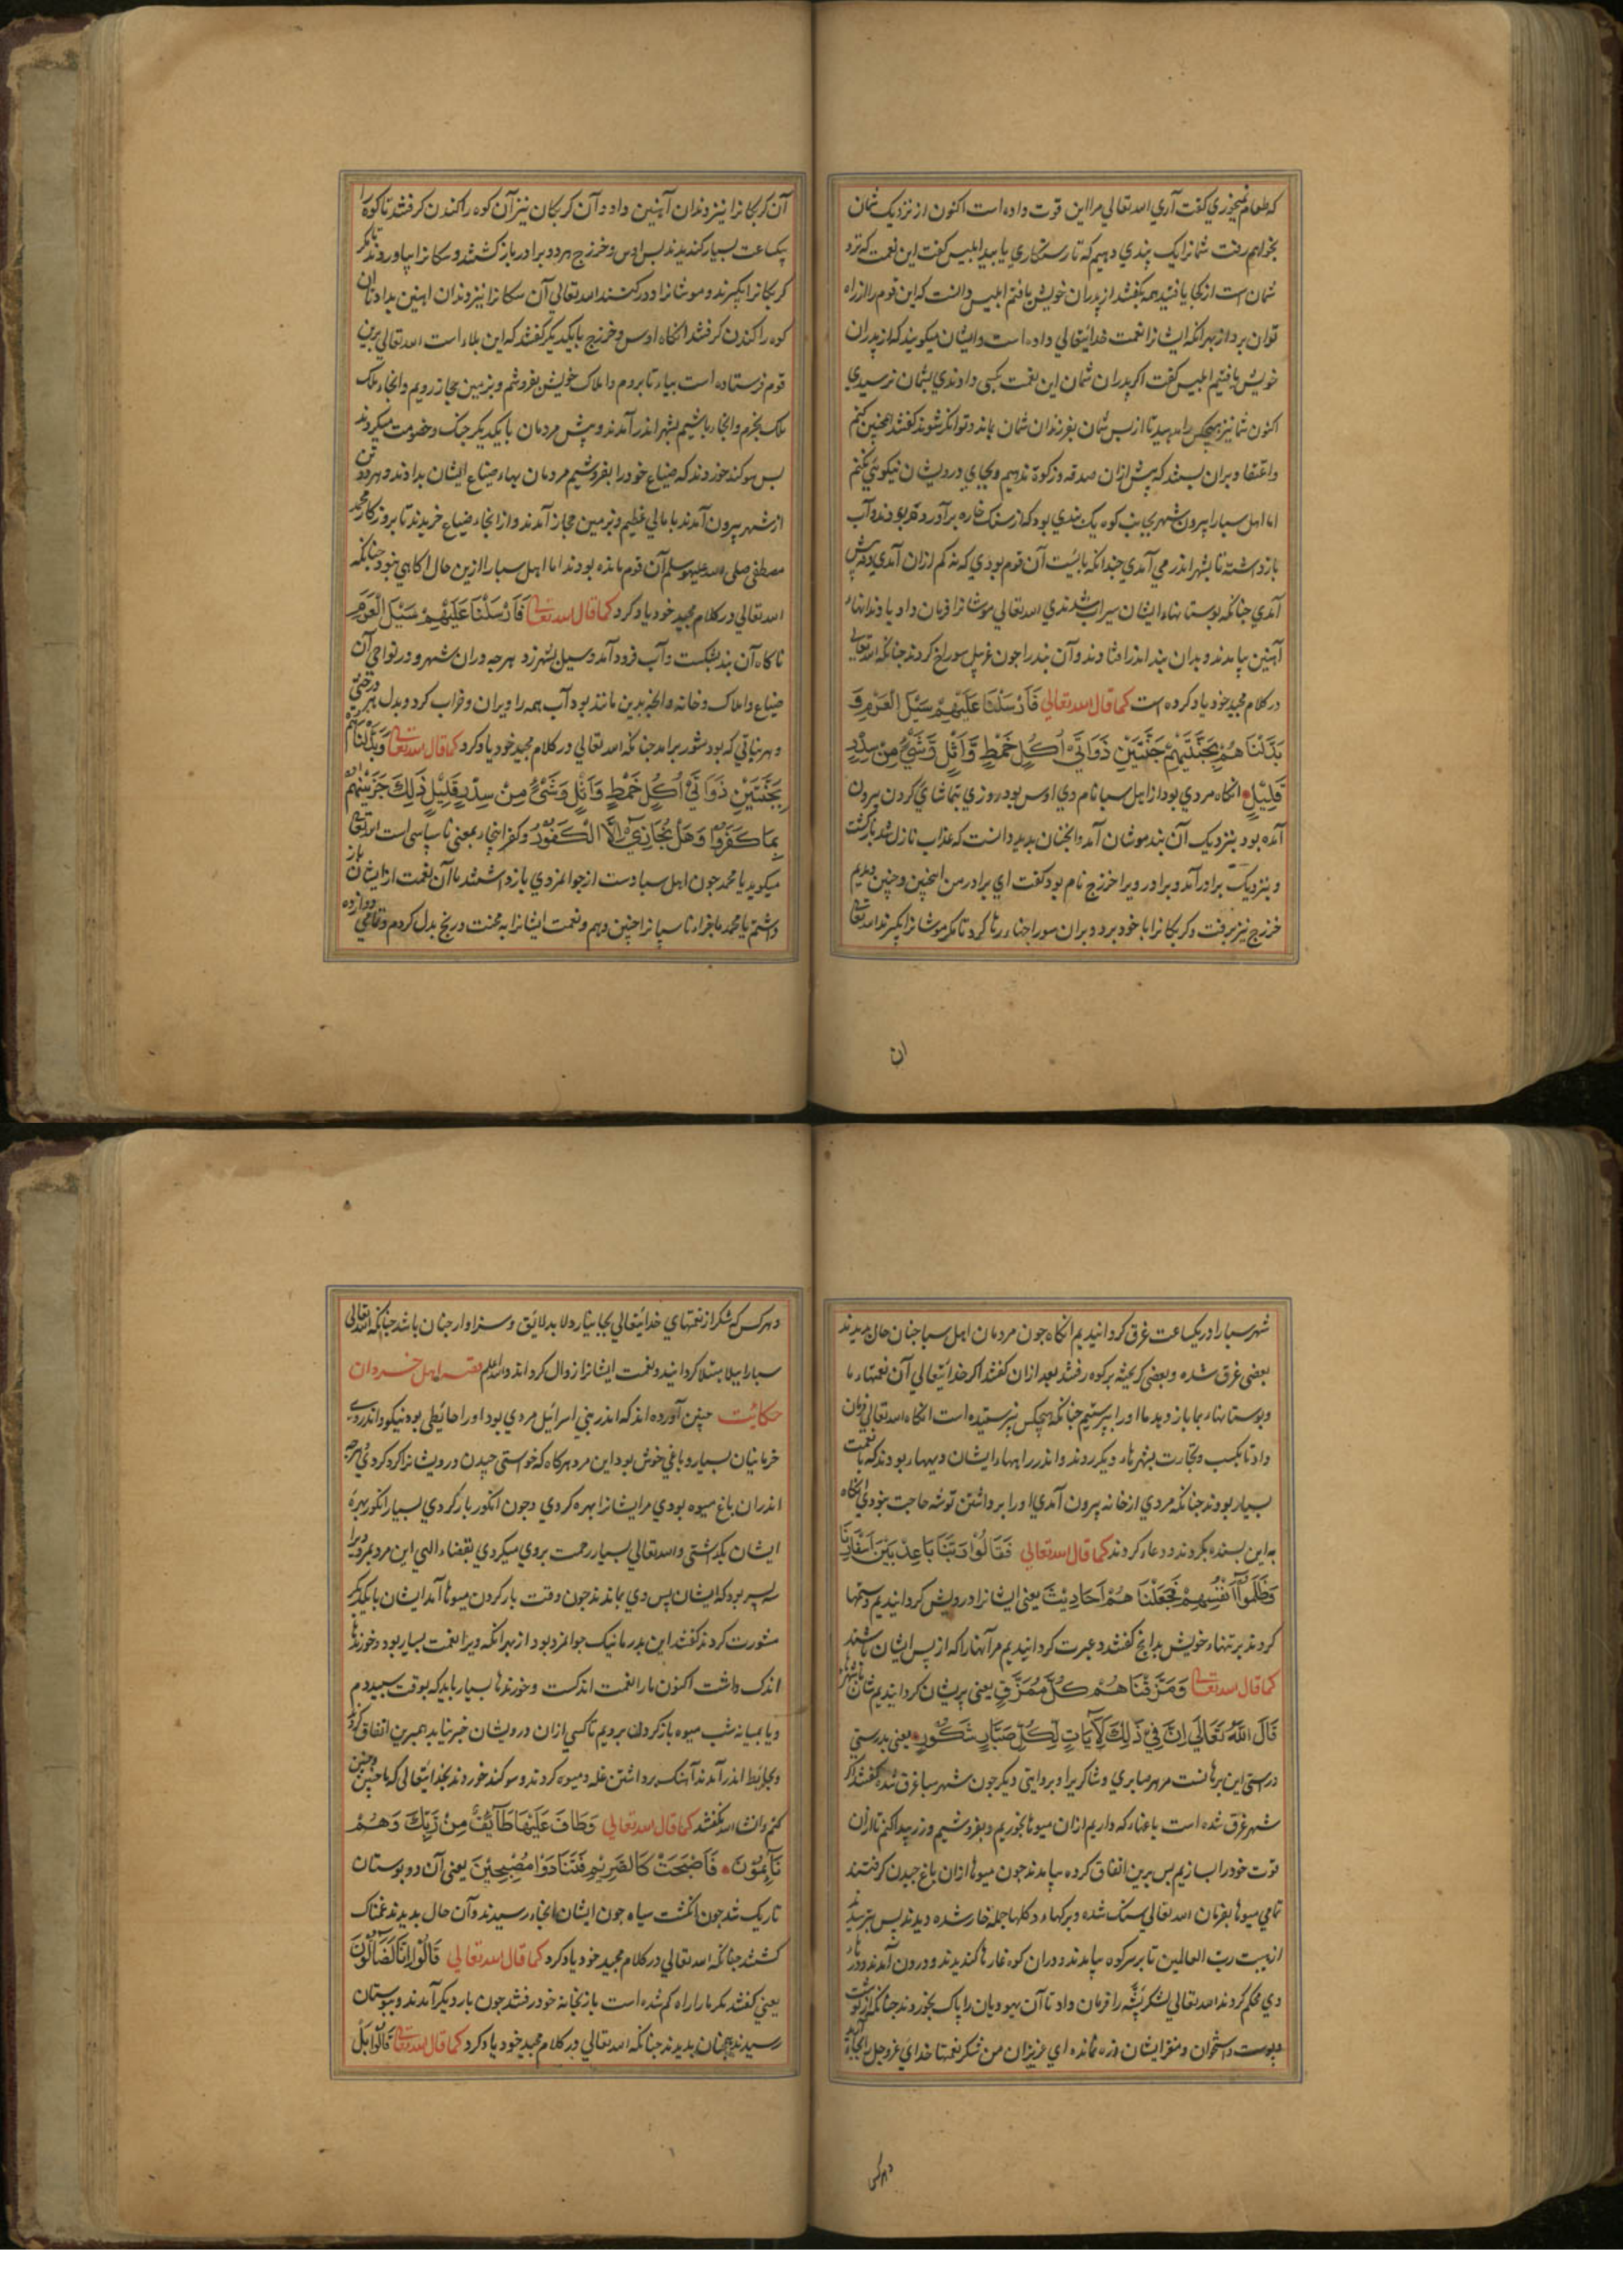 که طعام نمیخوری کفت آری الله تعالی مرا این قوت داده است اکنون از نزدیک شمان
بخواهم رفت شما را یک پندی دهیم که تا رستکاری یابید ابلیس کفت این نعمت که نزد
شمان است از کجا یافتید همه کفتند از پدران خویش یافتیم ابلیس دانست که این قوم را از راه
توان برد از بهر آنکه ایشانرا نعمت خدایتعالی داده است و ایشان میکویند که از پدران
خویش یافتیم ابلیس کفت اکر پدران شمان این نعمت کسی دادندی بشمان نرسیدی
اکنون شما نیز هیچکس را مدهید تا از پس شمان بفرزندان شمان بماند و توانکر شوند کفتند همچنین کنیم
و اعتقاد بران بستند که پیش ازان صدقه و زکوة ندهیم و بجای درویشان نیکوئی نکنیم
اما اهل سبا را بیرون شهر بجانب کوه یک بندی بود که از سنک خاره برآورده بودند و آب
باز داشته تا بشهر اندر می آمدی چندانکه بایست آن قوم بودی که نه کم ازان آمدی و نه بیش
آمدی چنانکه بوستانهاء ایشان سیراب شدندی الله تعالی موشانرا فرمان داد با دندانهاء
آهنین بیامدند و بدان بند اندر افتادند و آن بند را چون غربیل سوراخ کردند چنانکه الله تعالی
در کلام مجید خود یاد کرده است کما قال الله تعالی فَأَرْسَلْنَا عَلَيْهِمْ سَيْلَ الْعَرِمِ وَ
بَدَّلْنَاهُمْ بِجَنَّتَيْهِمْ جَنَّتَيْنِ ذَوَاتَيْ أُكُلٍ خَمْطٍ وَّأَثْلٍ وَّشَيْءٍ مِنْ سِدْرٍ
قَلِيْلٍ انکاه مردی بود از اهل سبا نام وی اوس بود روزی بتماشای کردن بیرون
آمده بود بنزدیک آن بند موشان آمد و انچنان بدید دانست که عذاب نازل شد بازکشت
و بنزدیک برادر آمد و برادر ویرا خزرج نام بود کفت ای برادر من اینچنین و چنین دیدم
خزرج نیز برفت و کربکانرا با خود برد و بران سوراخهاء رها کرد تا مکر موشانرا بکیرند الله تعالی
ان
آن کربکانرا نیز دندان آهنین داد و آن کربکان نیز آن کوه را کندن کرفتند تا کوه را
یکساعت بسیار کندیدند پس اوس و خزرج هر دو برادر باز کشتند و سکانرا بیاوردند تا مکر
کربکانرا بکیرند و موشانرا دور کنند الله تعالی آن سکانرا نیز دندان اهنین بداد تا آن
کوه را کندن کرفتند انکاه اوس و خزرج با یکدیکر کفتند که این بلاء است الله تعالی برین
قوم فرستاده است بیاء تا برویم و املاک خویش بفروشیم و بزمین حجاز رویم و انجاء ملک
ملک بخرم و انجاء باشیم بشهر اندر آمدند و پیش مردمان با یکدیکر جنک و خصومت میکردند
پس سوکند خوردند که ضیاع خود را بفروشیم مردمان بهاء ضیاع ایشان بدادند و هر دو تن
از شهر بیرون آمدند با مالی عظیم و بزمین حجاز آمدند و از انجاء ضیاع خریدند تا بروزکار محمد
مصطفی صلی الله علیه وسلم آن قوم مانده بودند اما اهل سبا را ازین حال آکاهی نبود چنانکه
الله تعالی در کلام مجید خود یاد کرد کما قال الله تعالی فَأَرْسَلْنَا عَلَيْهِمْ سَيْلَ الْعَرِمِ
ناکاه آن بند بشکست و آب فرود آمد و سیل بشهر زد هر چه دران شهر و در نواحی آن
ضیاع و املاک و خانه و انچه بدین مانند بود آب همه را ویران و خراب کرد و بدل هر درختی
و هر نباتی که بود شور برآمد چنانکه الله تعالی در کلام مجید خود یاد کرد کما قال الله تعالی وَبَدَّلْنَاهُمْ
بِجَنَّتَيْنِ ذَوَاتَيْ أُكُلٍ خَمْطٍ وَأَثْلٍ وَشَيْءٍ مِنْ سِدْرٍ قَلِيْلٍ ذَلِكَ جَزَيْنَاهُمْ
بِمَا كَفَرُوا وَهَلْ نُجَازِيْ إِلَّا الْكَفُوْرَ و کفر اینجاء بمعنی ناسپاسی است الله تعالی
میکوید یا محمد چون اهل سبا دست از جوانمردی باز داشتند ما آن نعمت از ایشان باز
داشتیم یا محمد ما جزاء ناسپاسانرا چنین دهیم و نعمت ایشانرا به محنت و رنج بدل کردم و تمامی دوازده
شهر سبا را در یکساعت غرق کردانیدیم انکاه چون مردمان اهل سبا چنان حال بدیدند
بعضی غرق شده و بعضی کریخته بر کوه رفتند بعد ازان کفتند اکر خدایتعالی آن نعمتهاء ما
و بوستانهاء بما باز دهد ما او را بپرستیم چنانکه هیچکس نپرستیده است انکاه الله تعالی فرمان
داد تا بکسب و تجارت بشهرهاء دیکر روند و اندر راههاء ایشان دیهاء بودند که با نعمت
بسیار بودند چنانکه مردی از خانه بیرون آمدی او را برداشتن توشه حاجت نبودی انکاه
به این بسنده نکردند و دعاء کردند کما قال الله تعالی فَقَالُوْا رَبَّنَا بَاعِدْ بَيْنَ أَسْفَارِنَا
وَظَلَمُوْا أَنْفُسَهُمْ فَجَعَلْنَاهُمْ أَحَادِيْثَ یعنی ایشانرا درویش کردانیدیم و ستمها
کردند بر تنهاء خویش بدانچ کفتند و عبرت کردانیدیم مر آنها را که از پس ایشان باشند
کما قال الله تعالی وَمَزَّقْنَاهُمْ كُلَّ مُمَزَّقٍ یعنی پریشان کردانیدیم شان بشهرها
قَالَ اللهُ تَعَالَى إِنَّ فِيْ ذَلِكَ لَآيَاتٍ لِكُلِّ صَبَّارٍ شَكُوْرٍ یعنی بدرستی
درستی این برهانست مر هر صابری و شاکریرا و بروایتی دیکر چون شهر سبا غرق شد کفتند اکر
شهر غرق شده است باغهاء که داریم ازان میوها بخوریم و بفروشیم و زر پیدا کنیم تا ازان
قوت خود را بسازیم پس برین اتفاق کرده بیامدند چون میوها ازان باغ چیدن کرفتند
تمامی میوها بفرمان الله تعالی سنک شده و برکهاء و کلها جمله خار شده دیدند پس بترسیدند
از هیبت رب العالمین تا بر سر کوه بیامدند و دران کوه غارها کندیدند و درون آمدند و در
وی محکم کردند الله تعالی لشکر پشه را فرمان داد تا آن یهودیان را پاک بخوردند چنانکه از کوشت
و پوست و استخوان و مغز ایشان ذره نمانده ای عزیزان من شکر نعمتهاء خدای عز و جل بجا آرید
هر کس
و هر کس که شکر از نعمتهای خدایتعالی بجا نیارد لا بد لایق و سزاوار چنان باشد چنانکه الله تعالی
سبا را ببلا مبتلا کردانید و نعمت ایشانرا زوال کرد والله اعلم قصه اهل خروان
حکایت چنین آورده اند که اندر بنی اسرائیل مردی بود او را حائطی بود نیکو و اندر وی
خرمابنان بسیار و باغی خوش بود این مرد هرکاه که خواستی چیدن درویشانرا کرد کردی هر چه
اندران باغ میوه بودی مر ایشانرا بهره کردی و چون انکور بار کردی بسیار انکور بهره
ایشان بکذاشتی والله تعالی بسیار رحمت بروی میکردی بقضاء الهی این مرد بمرد ویرا
سه پسر بود که ایشان پس وی بماندند چون وقت بار کردن میوها آمد ایشان با یکدیکر
مشورت کردند کفتند این پدر ما نیک جوانمرد بود از بهر آنکه ویرا نعمت بسیار بود و خورندها
اندک داشت اکنون ما را نعمت اندکست و خورندها بسیار باید که بوقت سپیده دم
و یا بمیانه شب میوه باز کردن برویم تا کسی ازان درویشان خبر نیابد همبرین اتفاق کردند
و بحائط اندر آمدند آهنک برداشتن غله و میوه کردند و سوکند خوردند بخدایتعالی که ما چنین و چنین
کنیم و انشاء الله نکفتند کما قال الله تعالی فَطَافَ عَلَيْهَا طَائِفٌ مِنْ رَبِّكَ وَهُمْ
نَائِمُوْنَ فَأَصْبَحَتْ كَالصَّرِيْمِ فَتَنَادَوْا مُصْبِحِيْنَ یعنی آن دو بوستان
تاریک شد چون انکشت سیاه چون ایشان انجاء رسیدند و آن حال بدیدند غمناک
کشتند چنانکه الله تعالی در کلام مجید خود یاد کرد کما قال الله تعالی قَالُوْا إِنَّا لَضَالُّوْنَ
یعنی کفتند مکر ما را راه کم شده است باز بخانه خود رفتند چون بار دیکر آمدند و ببوستان
رسیدند همچنان بدیدند چنانکه الله تعالی در کلام مجید خود یاد کرد کما قال الله تعالی قَالُوْا بَلْ